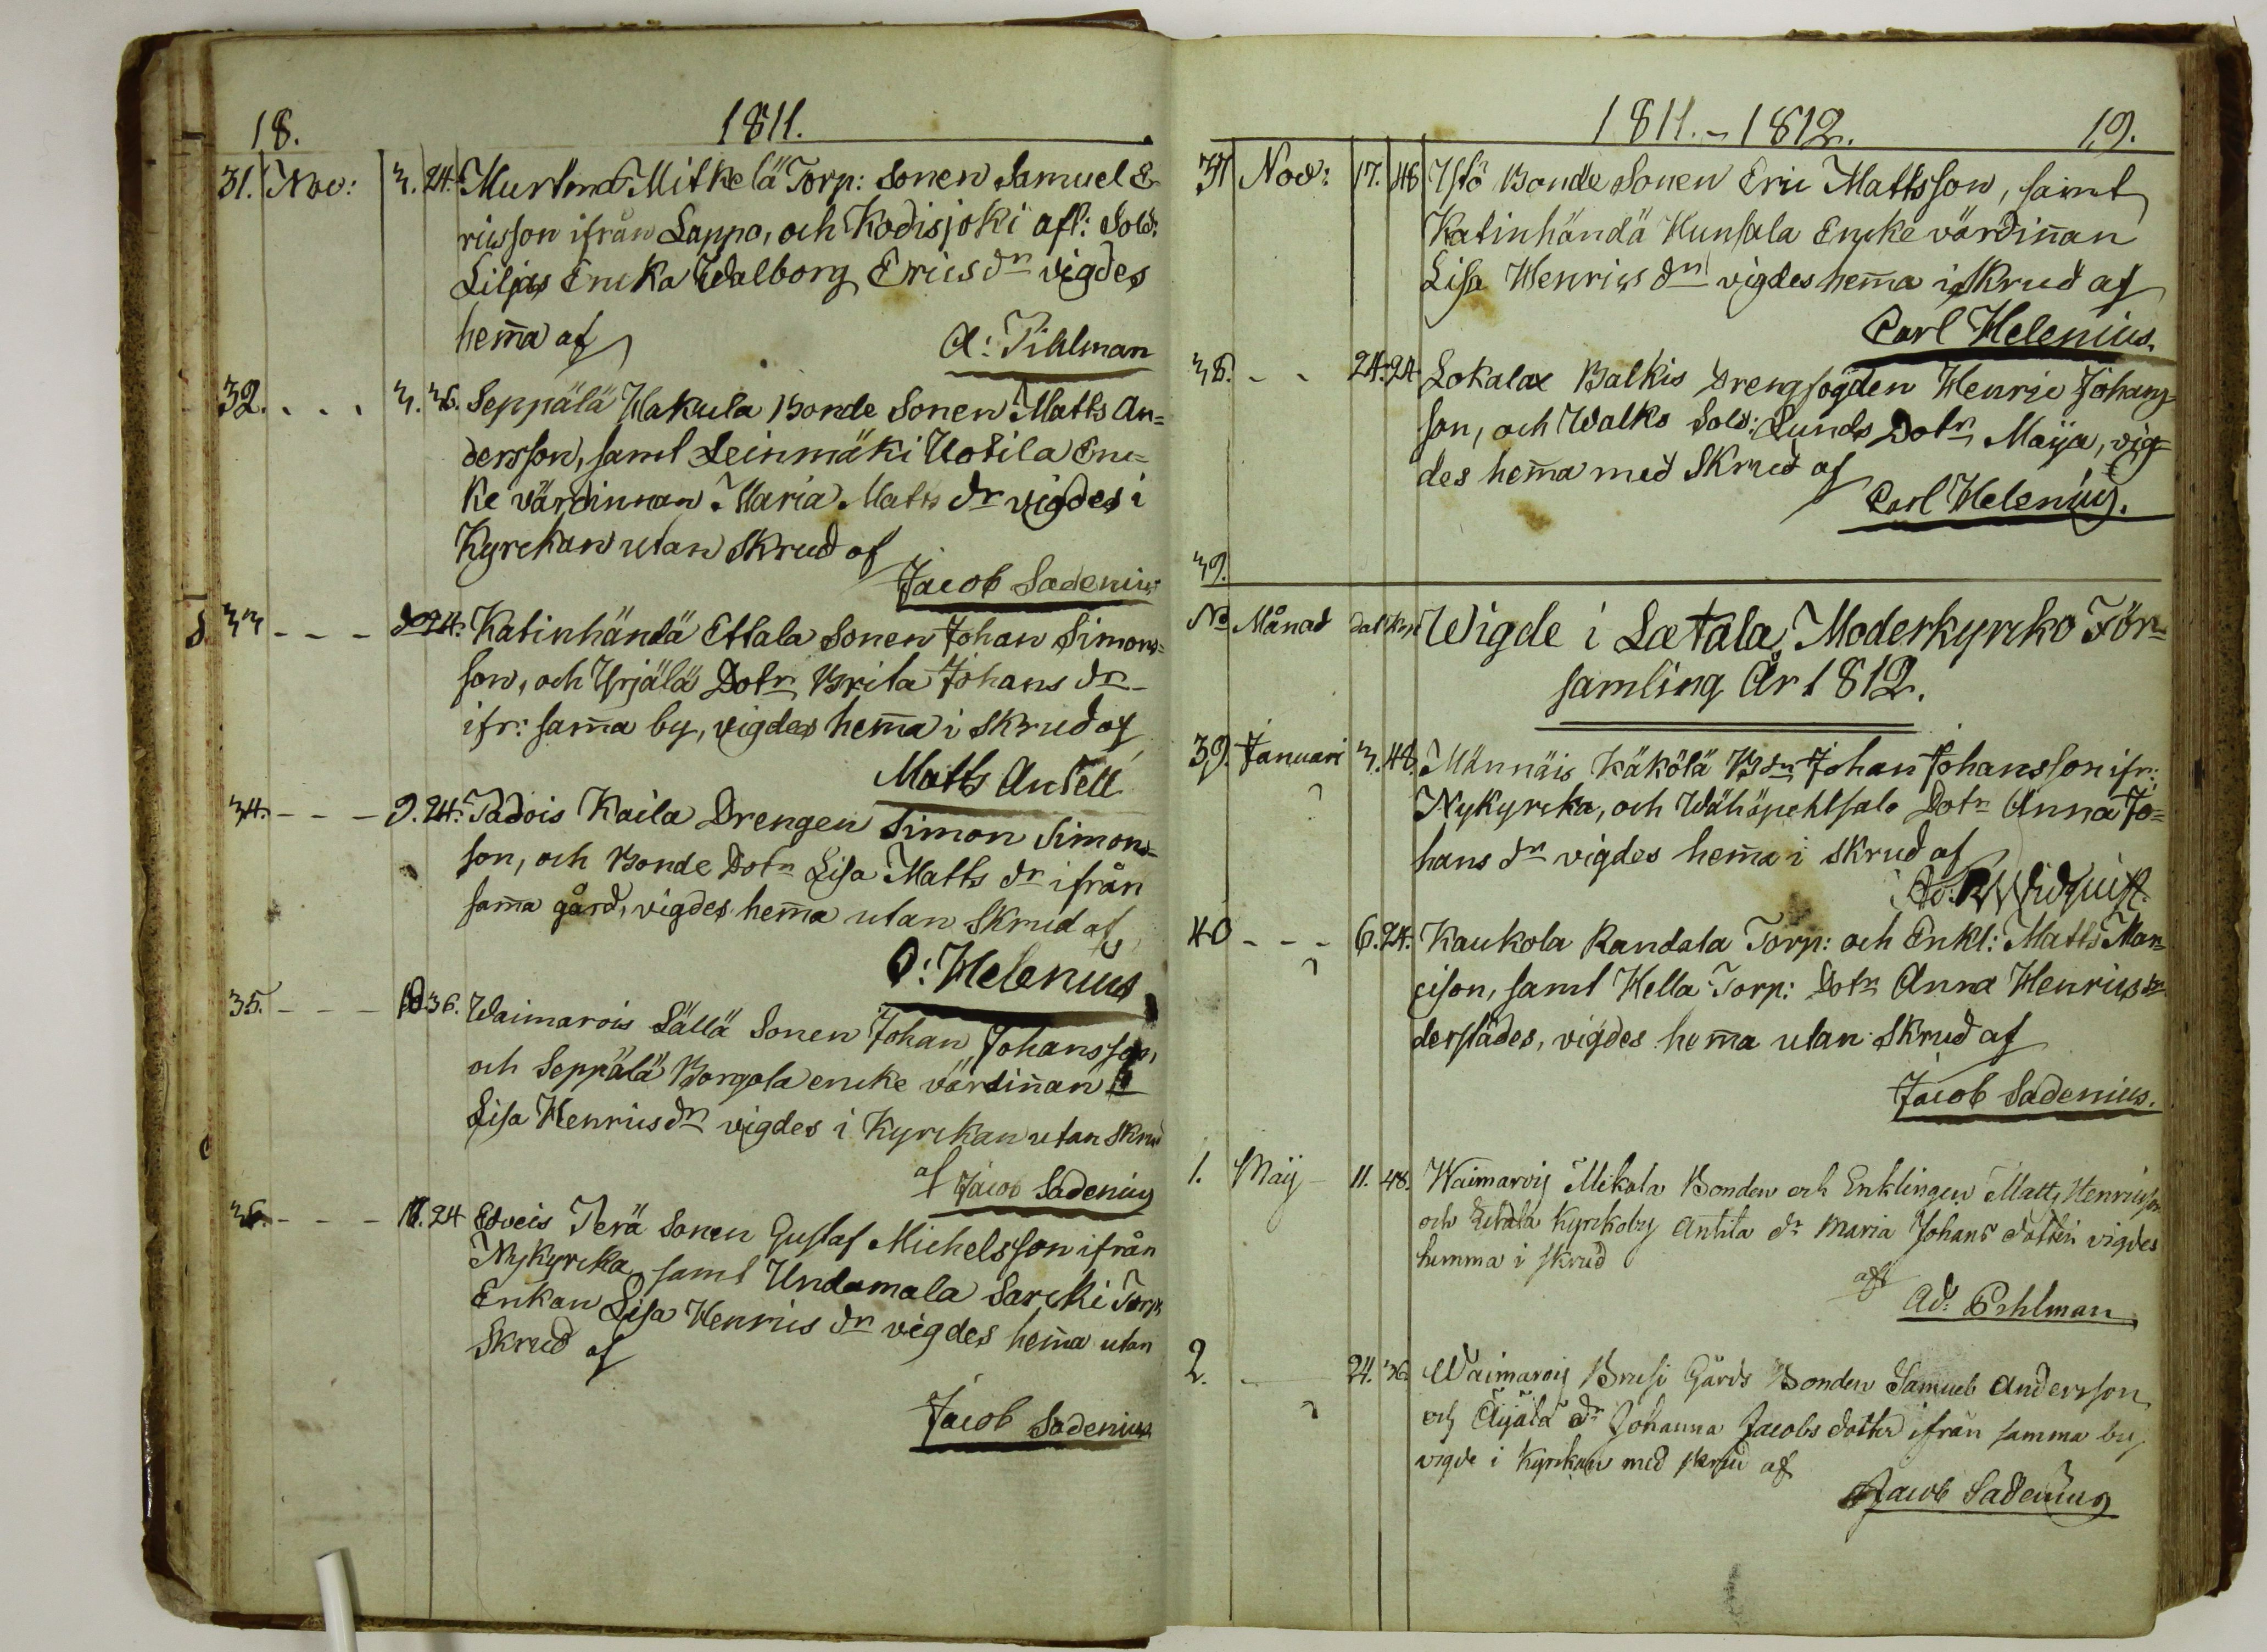 18. 1811.
31. Nov: 3. 24. Murtoma Mitkelä Torp: Sonen Samuel E-
ricsson ifrån Lappo, och Kodisjoki afl: Sold:
Liljas Encka Walborg Erics dr vigdes
hem̄a af
A: Pihlman
32. . . . 3. 36. Seppälä Hakula Bonde Sonen Matts An=
dersson, samt Leinmäki Uotila Enc=
ke värdinnan Maria Matts dr vigdes i
Kyrckan utan Skrud af
Jacob Sadenius
33 - - - do 24. Katinhändä Ettala Sonen Johan Simons=
son, och Yrjälä Dotn Brita Johans dr
ifr: sam̄a by, vigdes hem̄a i Skrud af
Matts Antell
34. - - - 9. 24. Tadois Kaila Drengen Simon Simons=
son, och Bonde Dotn Lisa Matts dr ifrån
sam̄a gård, vigdes hem̄a utan Skrud af
O: Helenius
35. - - - 10. 36. Waimarois Lällä Sonen Johan Johansson,
och Seppälä Borgola encke värdin̄an
Lisa Henrics dr vigdes i Kyrckan utan Skrud
af Jacob Sadenius
36. - - - 11. 24 Edveis Perä Sonen Gustaf Michelsson ifrån
Nykyrcka, samt Undamala Sarcki Torp:
Enkan Lisa Henrics dr vigdes hem̄a utan
Skrud af
Jacob Sadenius
1811. - 1812. 19.
37 Nov: 17. 48 Ylö Bonde Sonen Eric Mattsson, samt
Katinhändä Hunsala Encke värdin̄an
Lisa Henrics dr vigdes hem̄a i Skrud af
Carl Helenius.
38. - - 24. 24 Lokalax Balkis Drengfogden Henric Johans
son, och Walko Sold: Lunds Dotn Maija, vig=
des hem̄a med Skrud af
Carl Helenius.
39.
No Månad Dat Kop Wigde i Letala Moderkyrko För-
samling År 1812.
39. Januari 3. 48. Männäis Käkölä Bdn Johan Johansson ifr:
Nykyrcka, och Wähäpehtsalo Dotn Anna Jo=
hans dr vigdes hem̄a i skrud af
Ad: Widquist.
40 - - - 6. 24. Kaukola Randala Torp: och Enkl: Matts Mar=
cison, samt Hella Torp: Dotn Anna Henrics dr
derstädes, vigdes hem̄a utan Skrud af
Jacob Sadenius.
1. Maij 11. 48. Waimarois Mikola Bonden och Enklingen Matts Henricsson
och Letala Kyrckoby Antila dr Maria Johans dotter vigdes
hemma i skrud
af
Ad: Pihlman
2. 24. 36 Waimarois Brusi Gårds Bonden Samuel Andersson
och Äijälä dr Johanna Jacobs dotter ifrån samma by
vigde i Kyrckan med skrud af
Jacob Sadenius